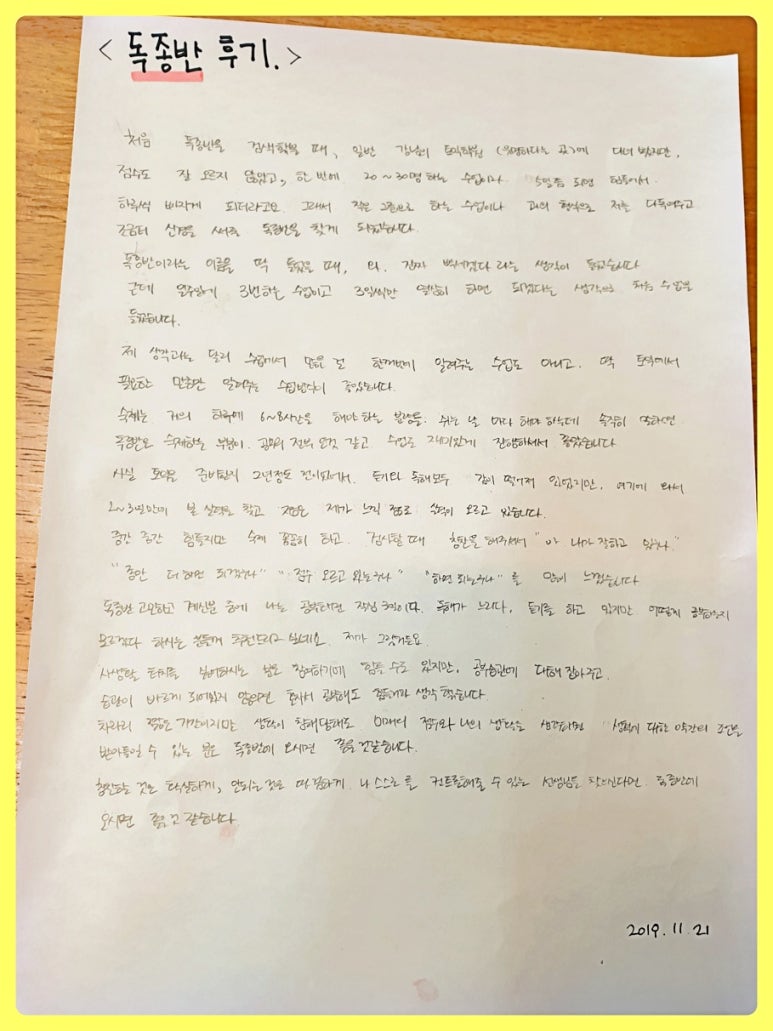 < 독종반 후기. >
처음 독종반을 검색했을 때, 일반 강남의 토익학원 (유명하다는 곳)에 다녀 봤지만,
점수도 잘 오르지 않았고, 한 번에 20~30명 하는 수업이라 5일쯤 되면 힘들어서
하루씩 빠지게 되더라고요. 그래서 작은 그룹으로 하는 수업이나 과외 형식으로 저를 다독여주고
조금더 신경을 써줄 독종반을 찾게 되었습니다.
독종반이라는 이름을 딱 들었을 때, 와. 진짜 빡세겠다 라는 생각이 들었습니다
근데 일주일에 3번하는 수업이고 3일씩만 열심히 하면 되겠다는 생각으로 처음 수업을
들었습니다.
제 생각과는 달리 수업에서 많은 걸 한꺼번에 알려주는 수업도 아니고. 딱 토익에서
필요한 만큼만 알려주는 수업방식이 좋았습니다.
숙제는. 거의 하루에 6~8시간을 해야 하는 분량을. 쉬는 날 마다 해야 하는데 솔직히 말하면
독종반은 숙제하는 부분이. 공부의 전부 인것 같고. 수업도 재미있게 진행하셔서 좋았습니다
사실 토익을 준비한지 2년정도 전이었어서. 듣기와 독해 모두 감이 떨어져 있었지만, 여기에 와서
2~3일만에 본 실력을 찾고 지금은 제가 느낄 정도로 실력이 오르고 있습니다.
중간 중간 힘들지만 숙제 꼼꼼히 하고. 점심할 때 칭찬을 해주셔서 "아 내가 잘하고 있구나."
"좀만 더 하면 되겠구나" "점수 오르고 있는구나" "하면 되는구나" 를 많이 느꼈습니다
독종반 고민하고 계신분 중에 나는 공부하면 작심 3일이다. 독해가 느리다. 듣기를 하고 있지만 어떻게 공부하는지
모르겠다 하시는 분들께 추천드리고 싶네요. 제가 그랬거든요.
사생활 터치를 싫어하시는 분은 참여하기에 힘들 수도 있지만, 공부습관에 대해 잡아주고.
습관이 바르게 되어있지 않으면 혼자서 공부해도 꽝이라 생각 했습니다
차라리 짧은 기간이지만 생활이 참해당해도 미래의 점수와 나의 생활을 생각하면 생활에 대한 약간의 조언을
받아들일 수 있는 분은 독종반에 오시면 좋을것같습니다.
칭찬하는 것은 확실하게, 안되는 것은 따끔하게. 나 스스로를 컨트롤해줄 수 있는 선생님을 찾으신다면. 독종반에
오시면 좋을 것 같습니다
2019. 11. 21